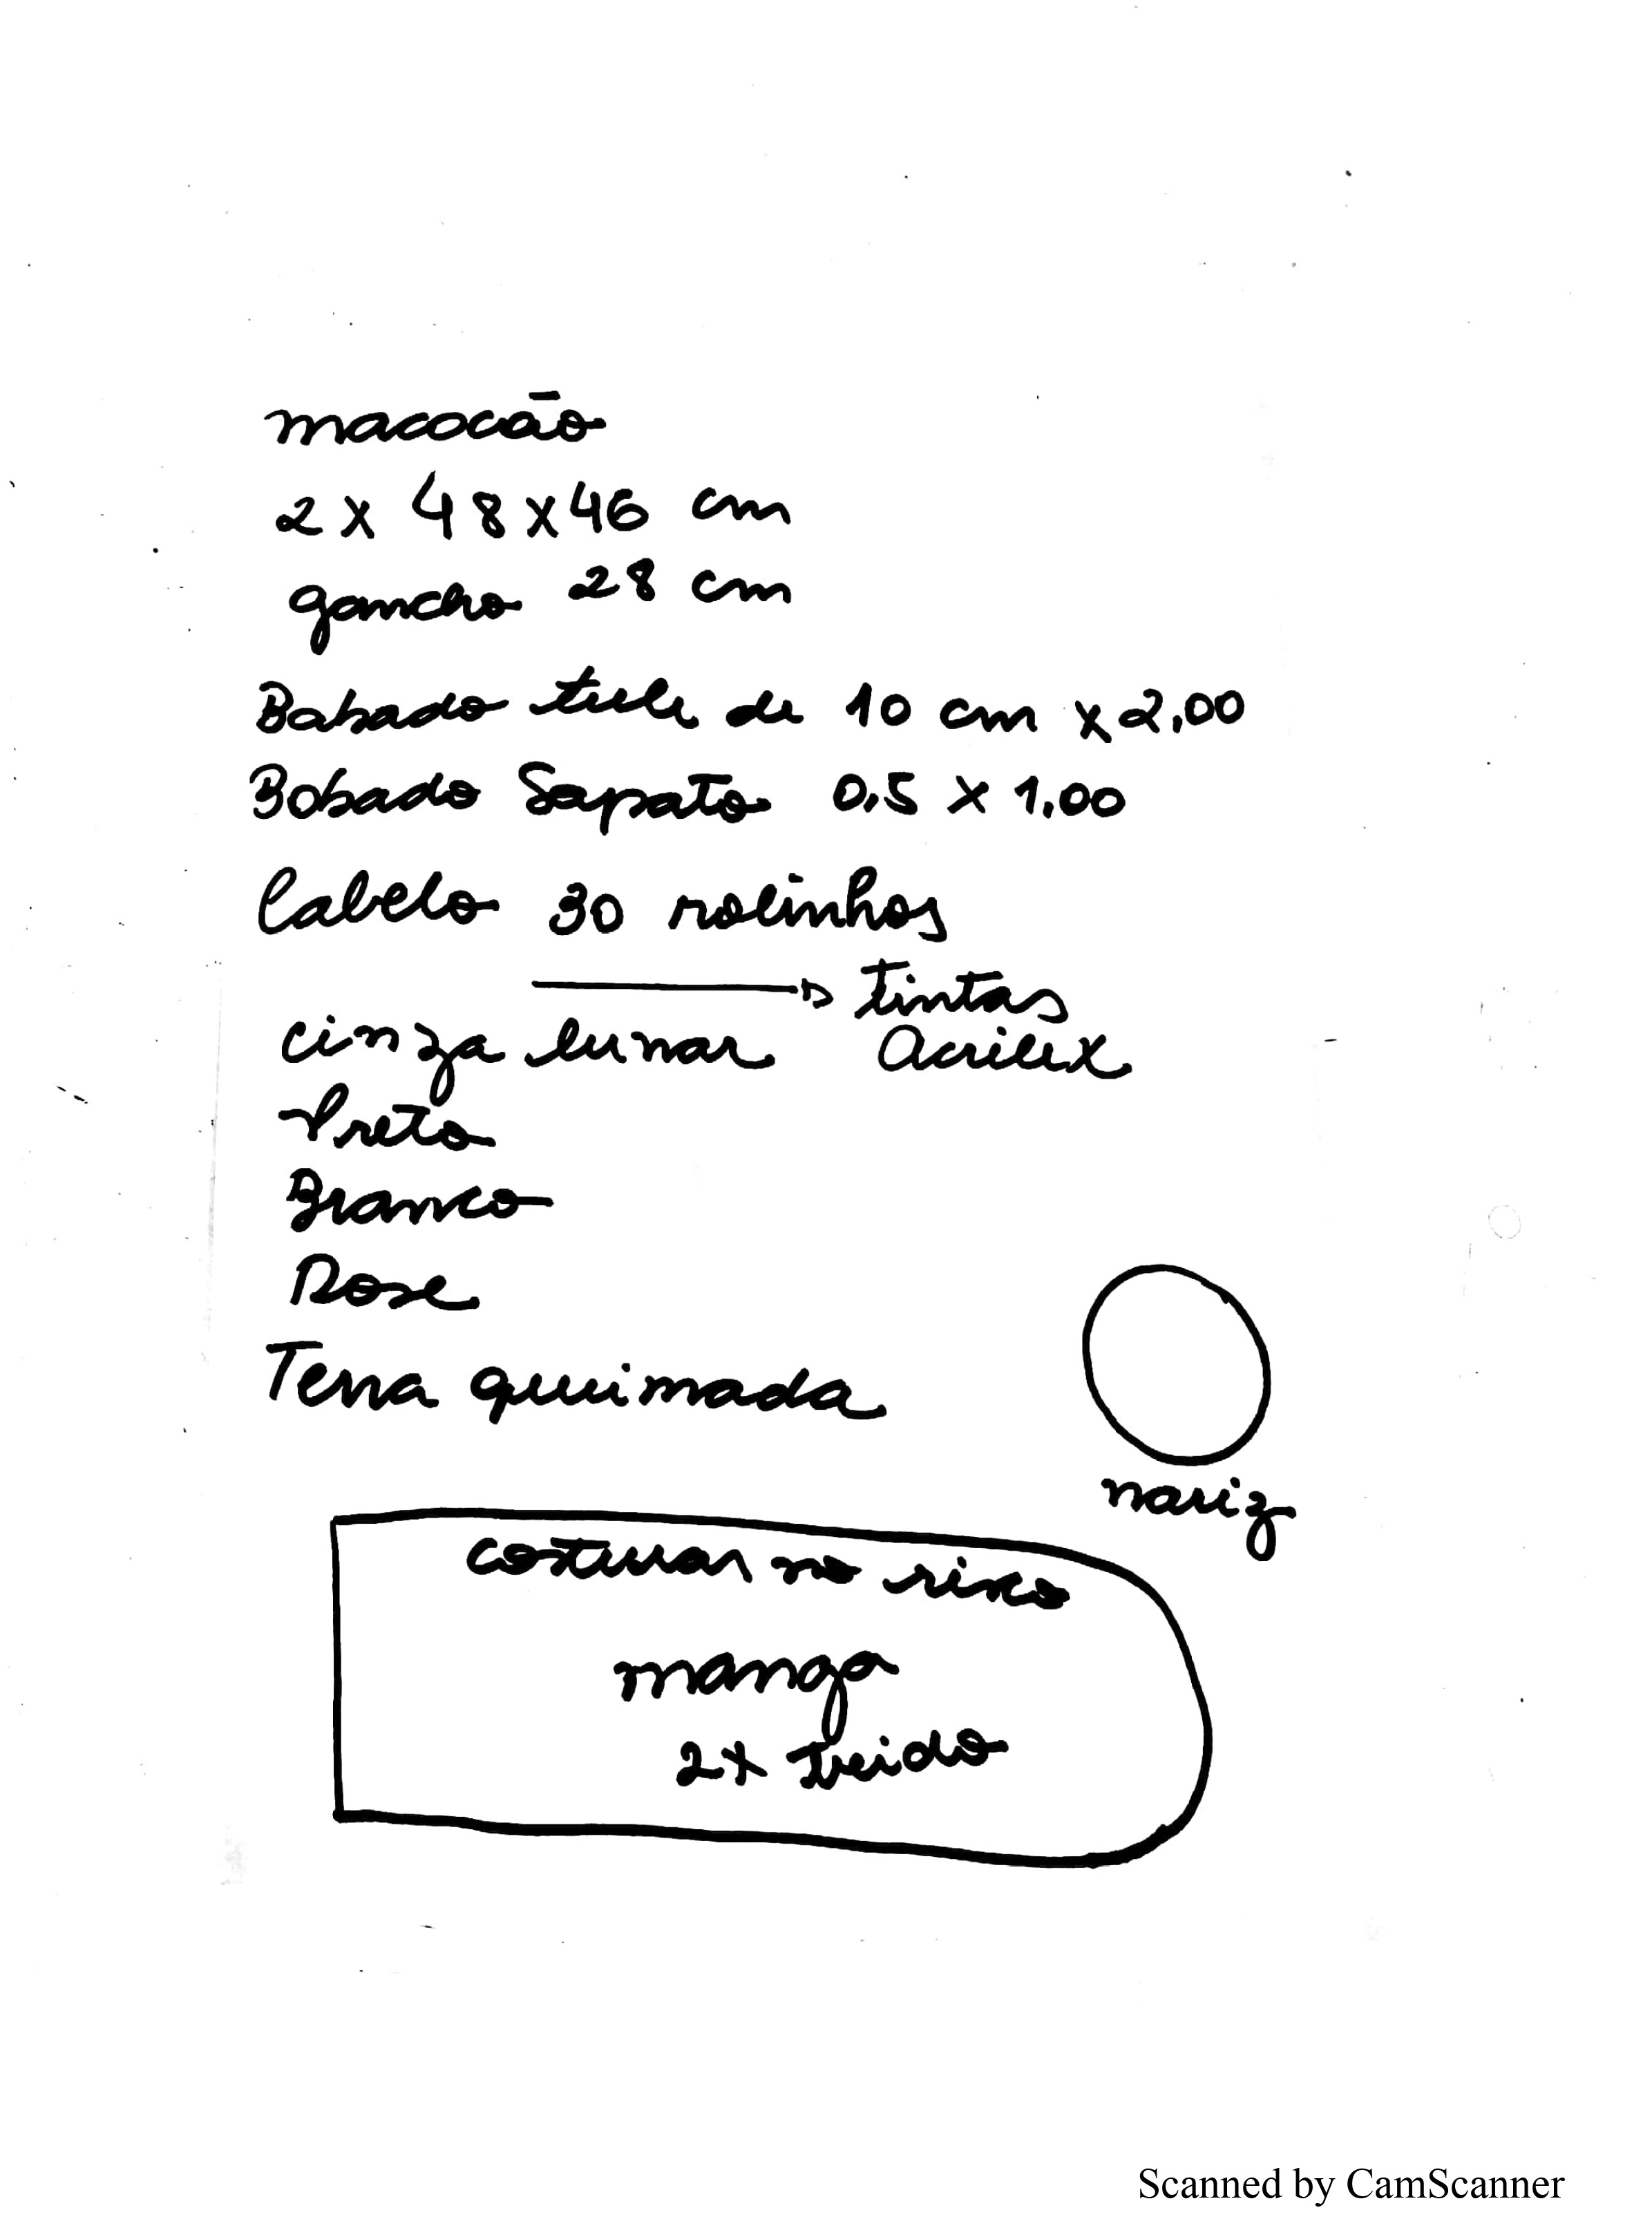 macacão
2 x 48 x 46 cm
gancho 28 cm
Babado tule de 10 cm x 2,00
Babado Sapato 0,5 x 1,00
Cabelo 30 rolinhos
tintas
cinza lunar Acrilex
Preto
Branco
Rose
Terra queimada
nariz
costurar no risco
manga
2x tecido
Scanned by CamScanner